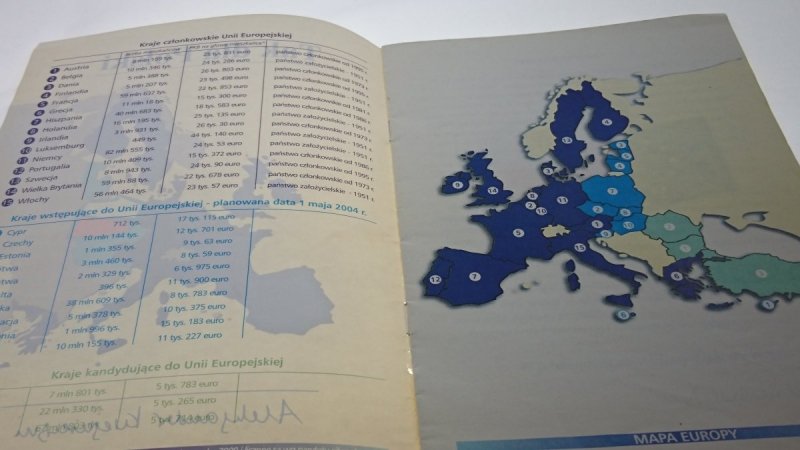 Kraje członkowskie Unii Europejskiej
liczba mieszkańców PKB na głowę mieszkańca*
1 Austria 8 mln 139 tys. 28 tys. 831 euro państwo członkowskie od 1995 r.
2 Belgia 10 mln 346 tys. 24 tys. 286 euro państwo założycielskie - 1951 r.
3 Dania 5 mln 388 tys. 26 tys. 803 euro państwo członkowskie od 1973 r.
4 Finlandia 5 mln 207 tys. 23 tys. 498 euro państwo członkowskie od 1995 r.
5 Francja 58 mln 637 tys. 22 tys. 853 euro państwo założycielskie - 1951 r.
6 Grecja 11 mln 18 tys. 15 tys. 300 euro państwo członkowskie od 1981 r.
7 Hiszpania 40 mln 683 tys. 18 tys. 583 euro państwo członkowskie od 1986 r.
8 Holandia 16 mln 195 tys. 25 tys. 135 euro państwo założycielskie - 1951 r.
9 Irlandia 3 mln 931 tys. 26 tys. 30 euro państwo członkowskie od 1973 r.
10 Luksemburg 449 tys. 44 tys. 140 euro państwo założycielskie - 1951 r.
11 Niemcy 82 mln 555 tys. 24 tys. 53 euro państwo założycielskie - 1951 r.
12 Portugalia 10 mln 409 tys. 15 tys. 372 euro państwo członkowskie od 1986 r.
13 Szwecja 8 mln 943 tys. 24 tys. 90 euro państwo członkowskie od 1995 r.
14 Wielka Brytania 59 mln 88 tys. 22 tys. 678 euro państwo członkowskie od 1973 r.
15 Włochy 56 mln 464 tys. 23 tys. 57 euro państwo założycielskie - 1951 r.
Kraje wstępujące do Unii Europejskiej - planowana data 1 maja 2004 r.
Cypr 712 tys. 17 tys. 115 euro
Czechy 10 mln 144 tys. 12 tys. 701 euro
Estonia 1 mln 355 tys. 9 tys. 63 euro
twa 3 mln 460 tys. 8 tys. 59 euro
twa 2 mln 329 tys. 6 tys. 975 euro
lta 396 tys. 11 tys. 900 euro
ka 38 mln 609 tys. 8 tys. 783 euro
acja 5 mln 378 tys. 10 tys. 375 euro
enia 1 mln 996 tys. 15 tys. 183 euro
10 mln 155 tys. 11 tys. 227 euro
Kraje kandydujące do Unii Europejskiej
7 mln 801 tys. 5 tys. 783 euro
22 mln 330 tys. 5 tys. 265 euro
MAPA EUROPY